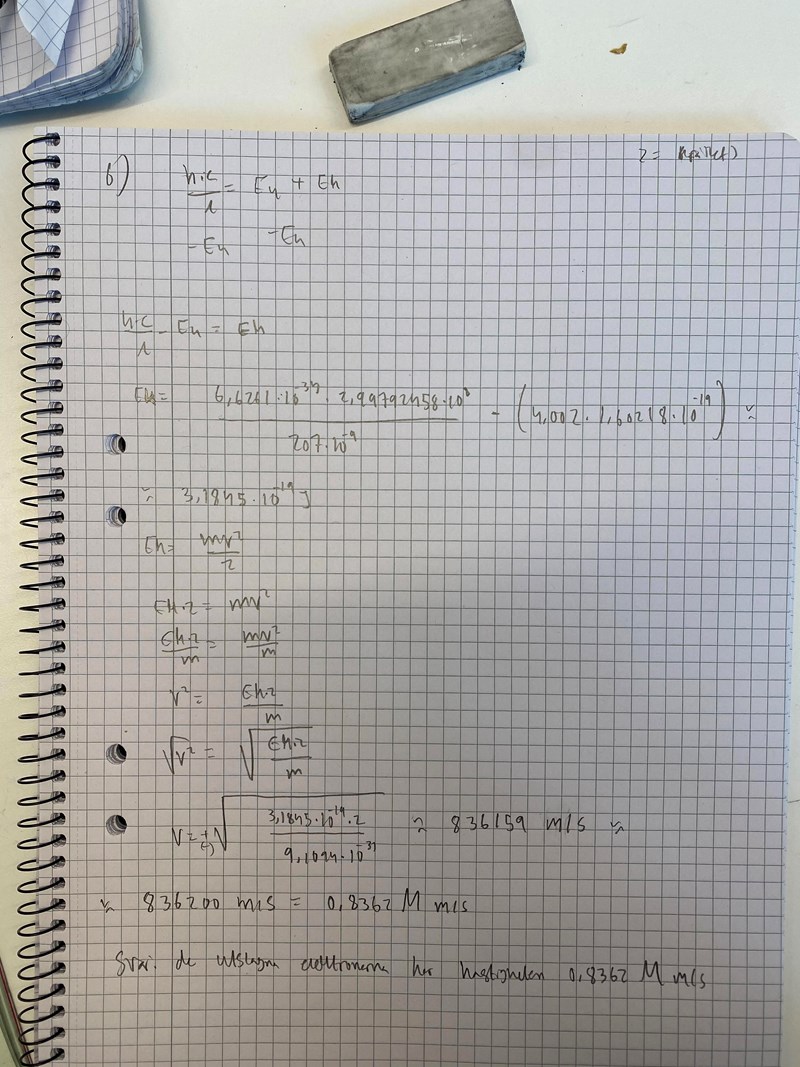 b)
h·c/λ = Eu + Ek
-Eu -Eu
h·c/λ - Eu = Ek
Ek = 6,6261·10^-34 · 2,99792458·10^8 / 207·10^-9 - (4,002·1,60218·10^-19) ≈
≈ 3,1845·10^-19 J
Ek = mv²/2
Ek·2 = mv²
Ek·2/m = mv²/m
v² = Ek·2/m
√v² = √(Ek·2/m)
V = ±√(3,1845·10^-19·2 / 9,1094·10^-31) ≈ 836159 m/s ≈
≈ 836200 m/s = 0,8362 M m/s
Svar: de utslagna elektronerna har hastigheten 0,8362 M m/s